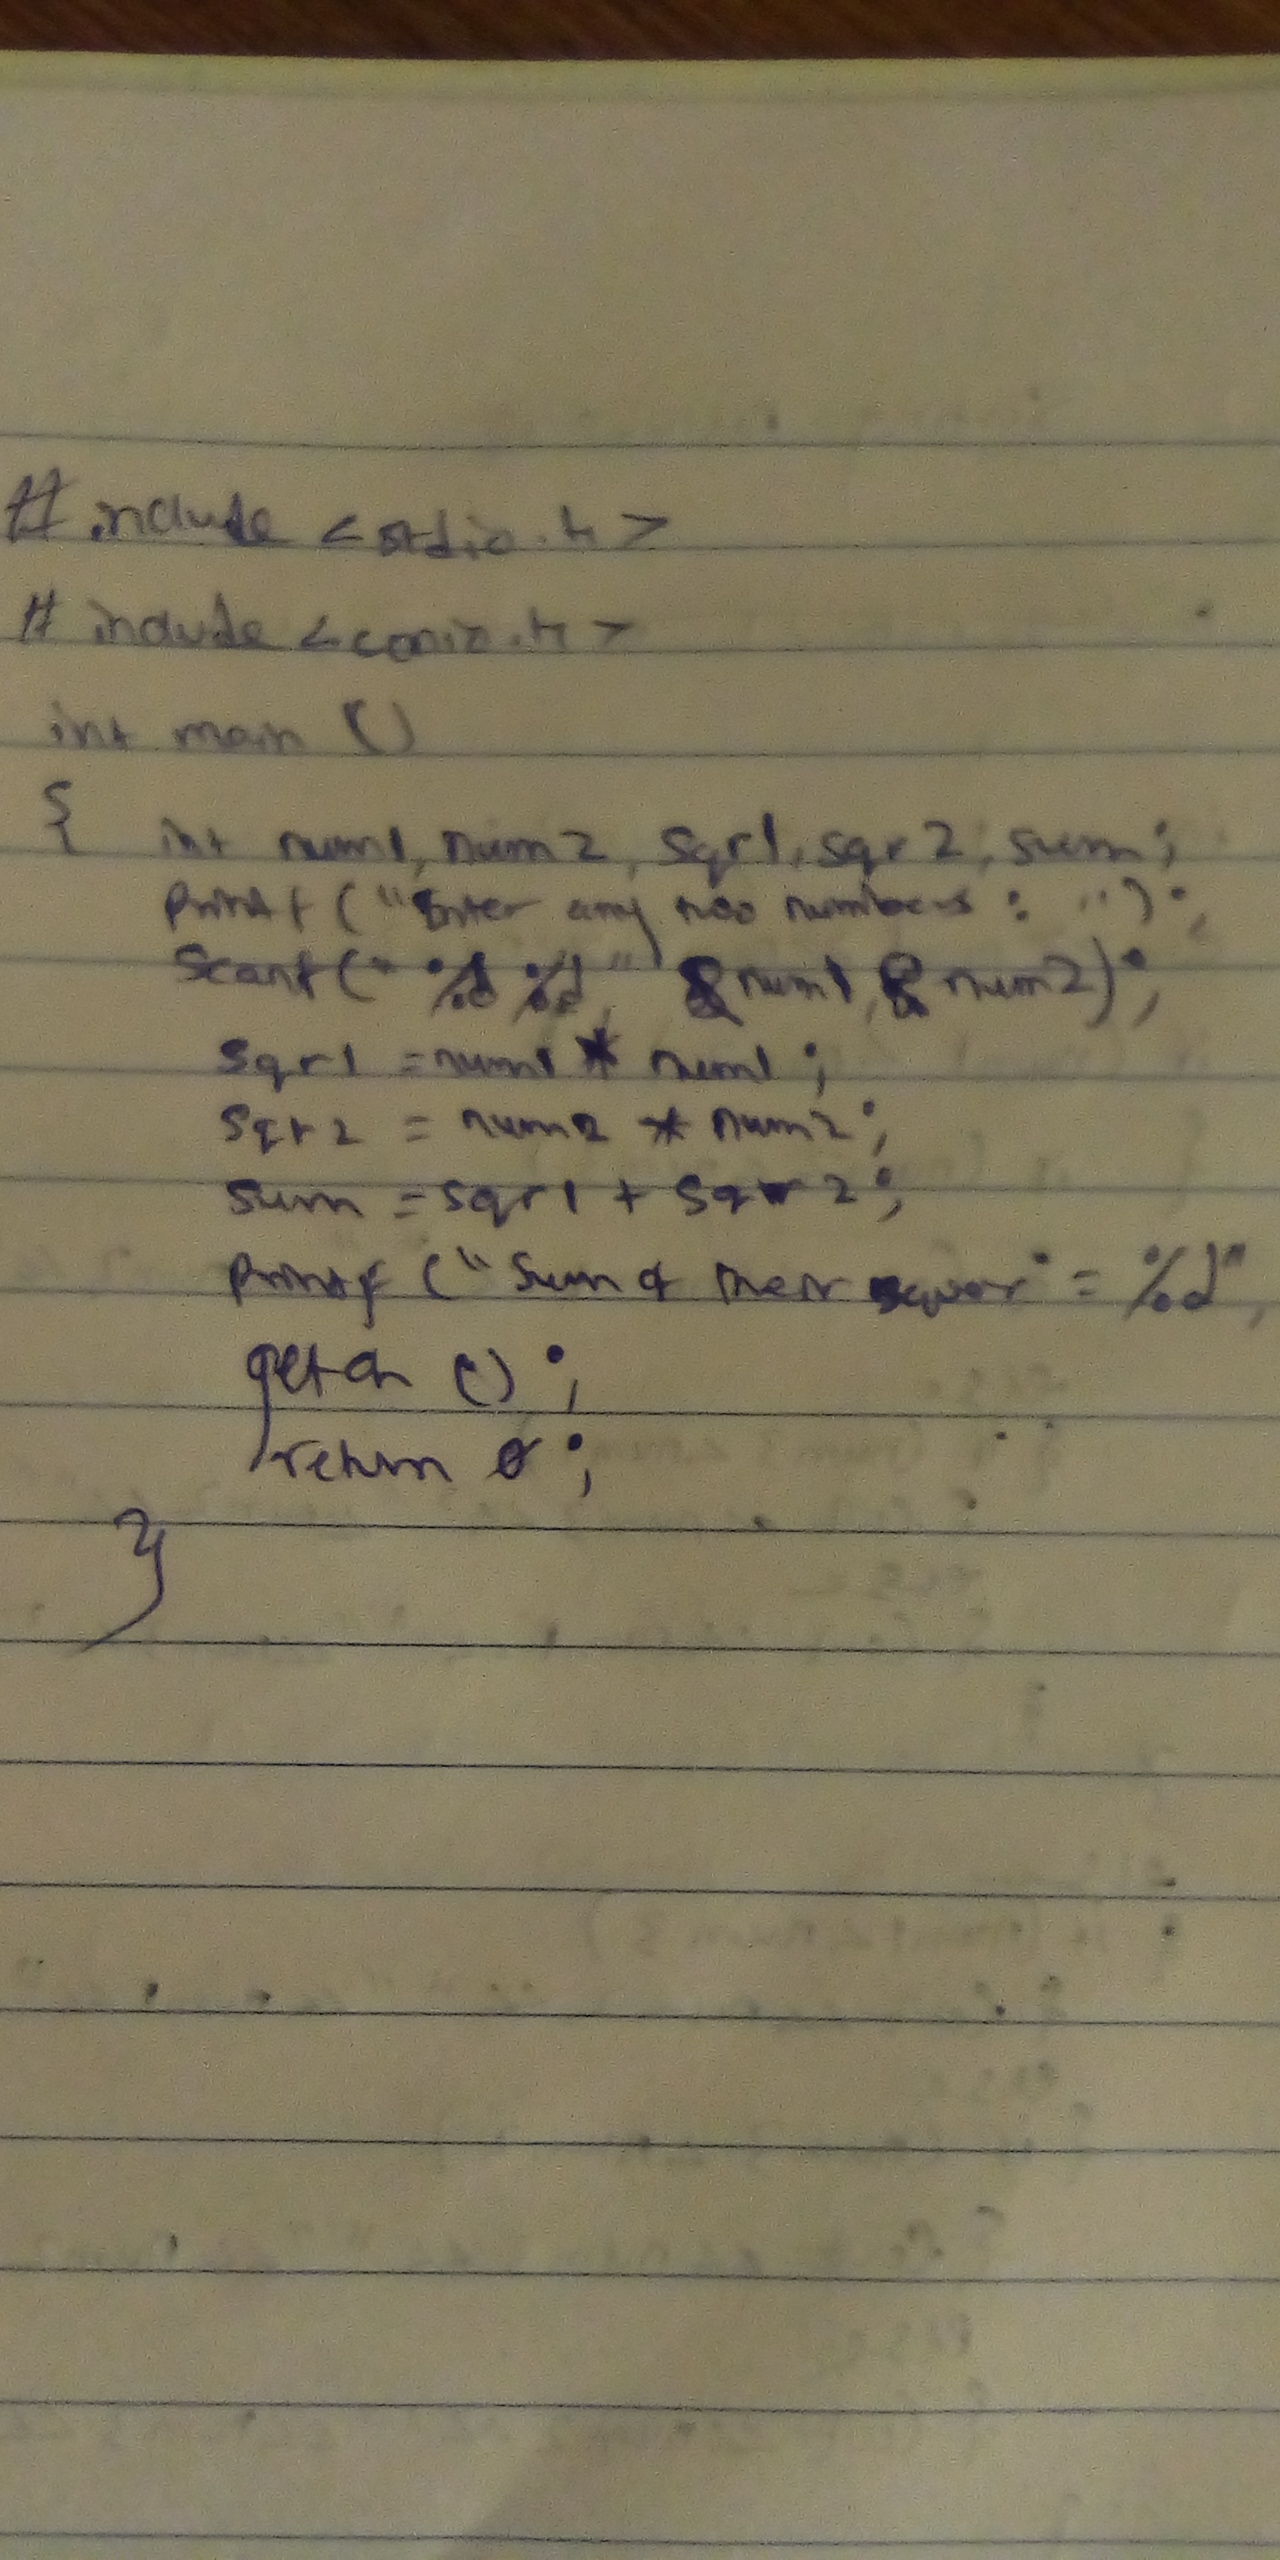 # include <stdio.h>
# include <conio.h>
int main ()
{ int num1, num2, sqr1, sqr2, sum;
printf ("Enter any two numbers : ");
Scanf (" %d %d " &num1, & num2);
sqr1 = num1 * num1 ;
sqr2 = num2 * num2 ;
sum = sqr1 + sqr2 ;
printf ("Sum of their = %d",
getch () ;
return 0 ;
}